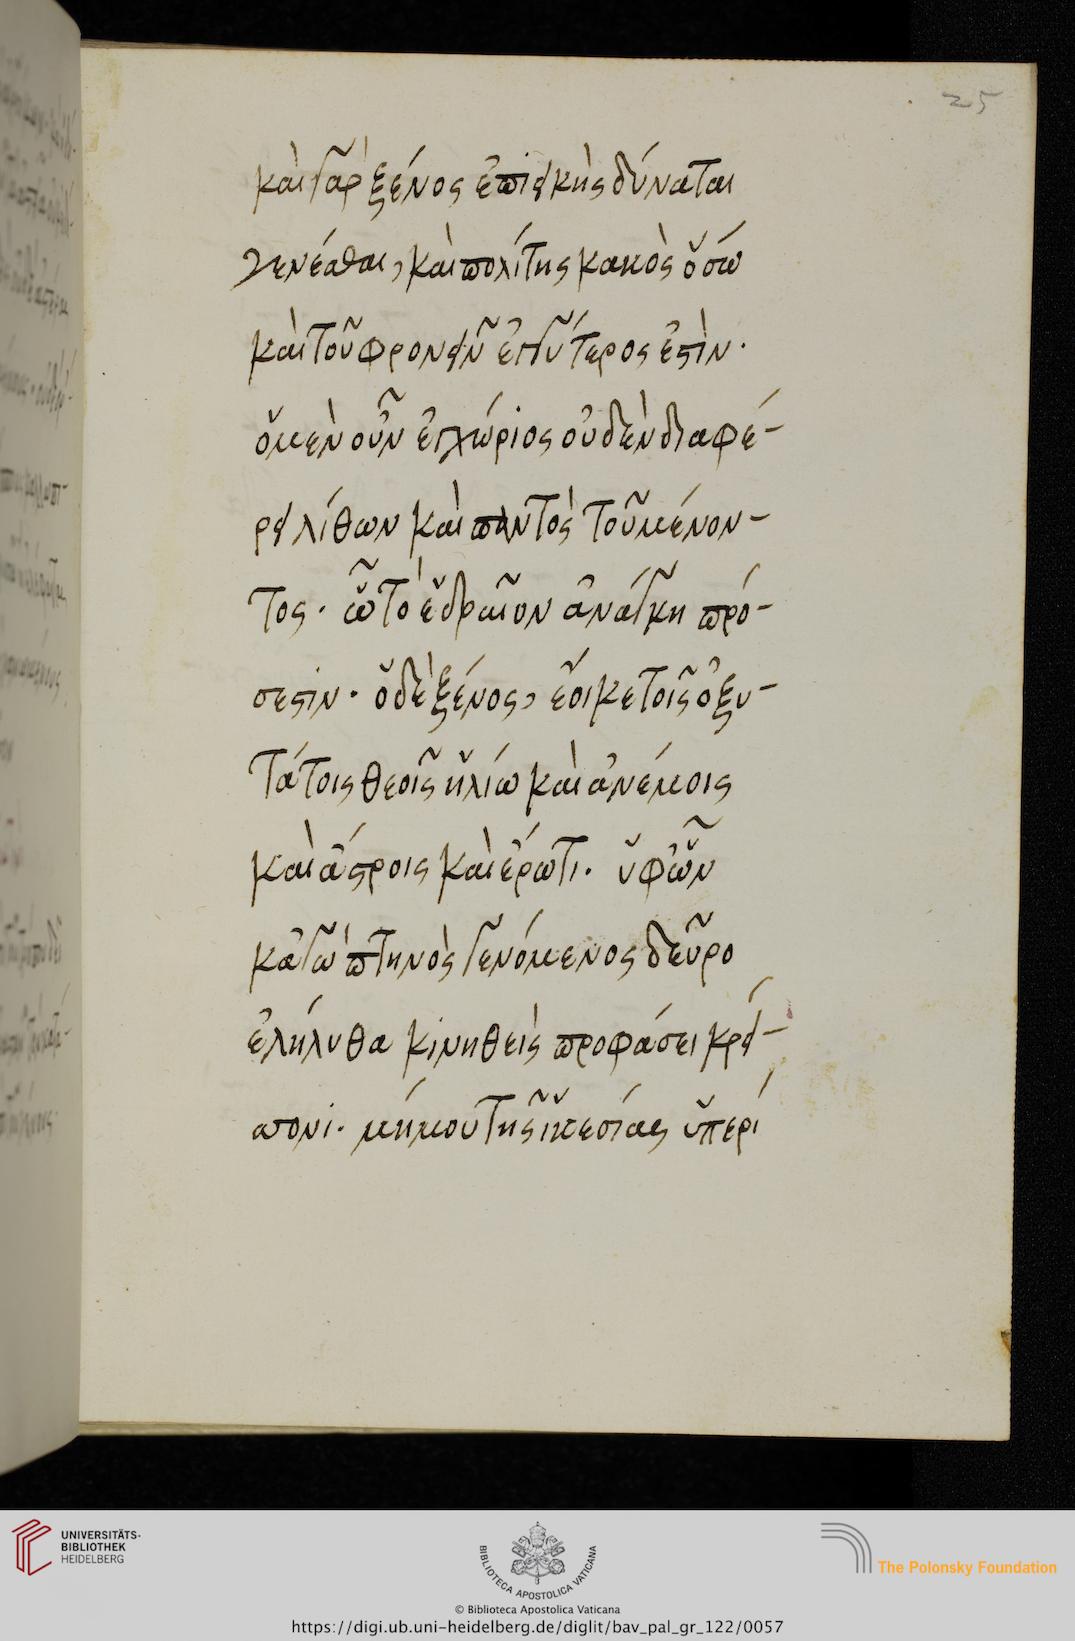 25
καὶ γὰρ ξένος ἐπιεικὴς δύναται
γενέσθαι, καὶ πολίτης κακὸς ὅσω
καὶ τοῦ φρονεῖν ἐγγύτερος ἐστὶν.
ὁ μὲν οὖν ἐπιχώριος οὐδὲν διαφέ-
ρει λίθων καὶ παντὸς τοῦ μένον-
τος. ὧ τὸ ἑδραῖον ἀνάγκη πρό-
σεστιν. ὁ δὲ ξένος, ἔοικε τοῖς ὀξυ-
τάτοις θεοῖς ἡλίω καὶ ἀνέμοις
καὶ ἄστροις καὶ ἔρωτι. ὑφ' ὧν
κἀγὼ πτηνὸς γενόμενος δεῦρο
ἐλήλυθα κινηθεὶς προφάσει κρεί-
ττονι. μή μου τῆς ἱκεσίας ὑπερί
UNIVERSITÄTS-
BIBLIOTHEK
HEIDELBERG
BIBLIOTECA APOSTOLICA VATICANA
The Polonsky Foundation
© Biblioteca Apostolica Vaticana
https://digi.ub.uni-heidelberg.de/diglit/bav_pal_gr_122/0057